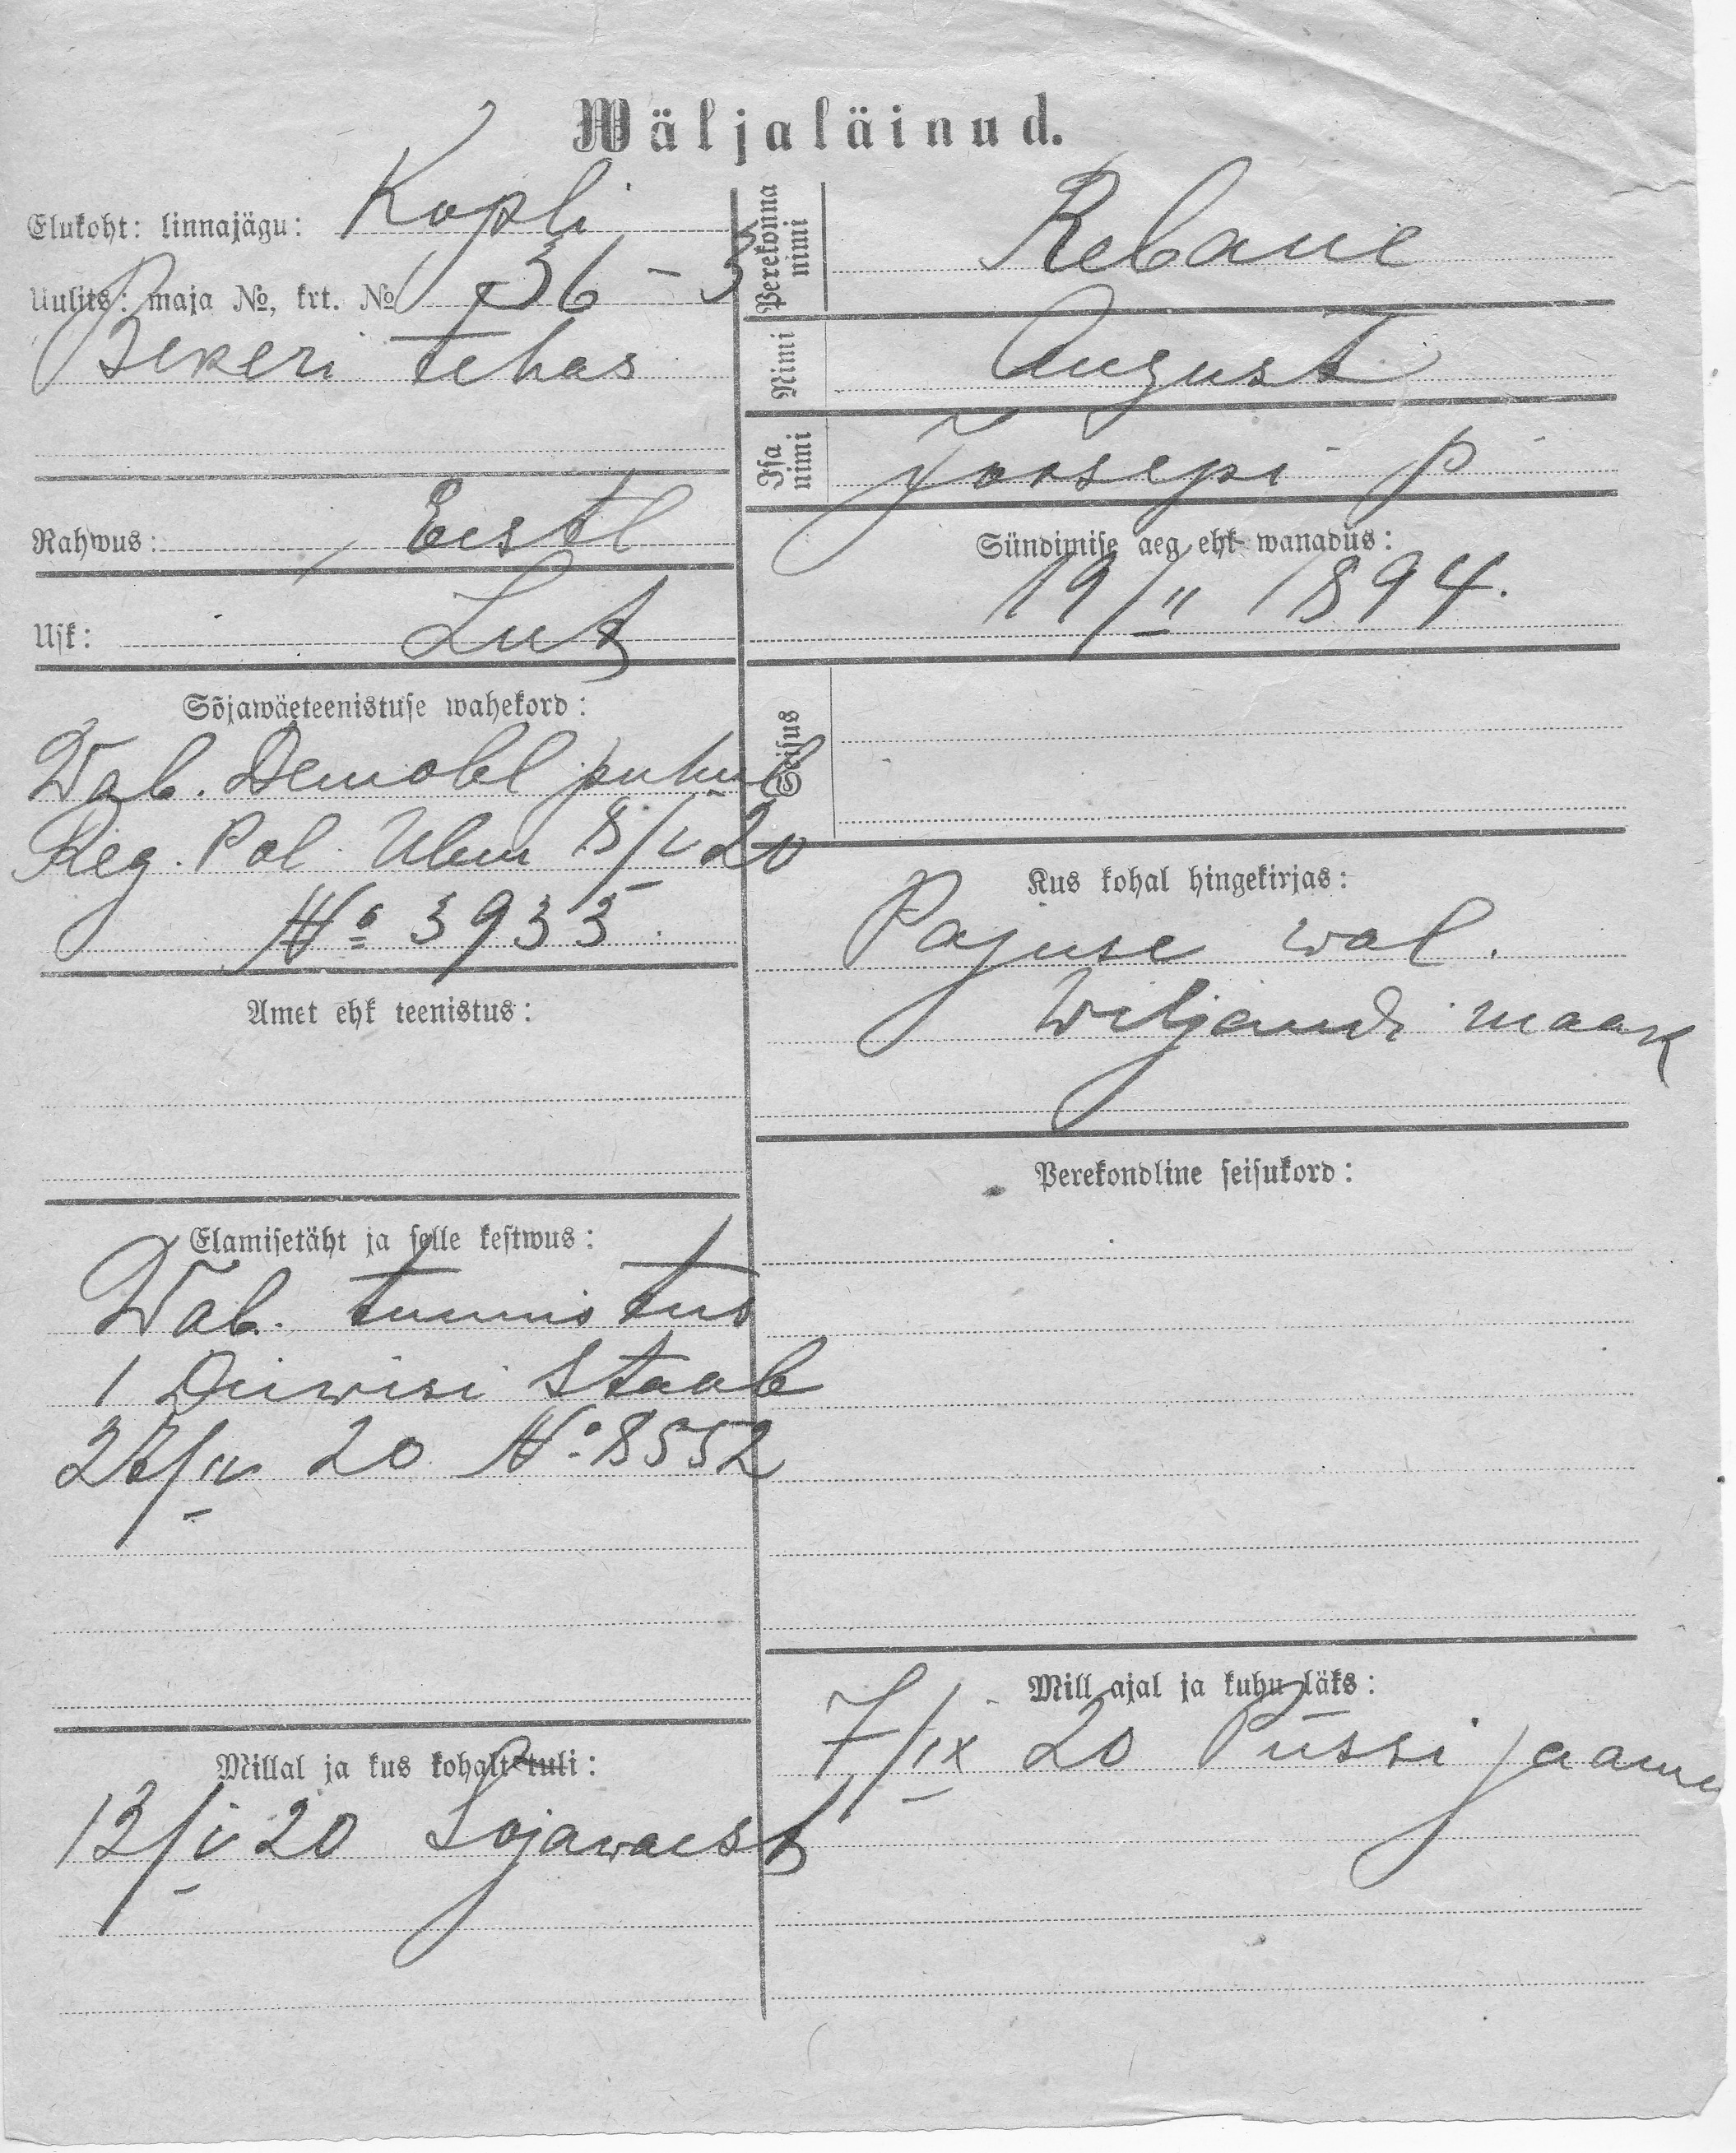 Wäljaläinud.
Elukoht: linnajägu: Kopli
Uulits: maja №, krt. № 36 – 3
Bekeri tehas
Rahwus: Eestl
Usk: Lut
Sõjawäeteenistuse wahekord:
Wab. Demobl puhul
Reg. Pol. Ülem 20
№ 3933
Amet ehk teenistus:
Elamisetäht ja selle kestwus:
Wab. tunnistus
1 Diiwisi Staab
20 № 8552
Millal ja kus kohalt tuli:
20 Sojawaest
Perekonna nimi
Rebane
Nimi
August
Isa nimi
Joosepi p
Sündimise aeg ehk wanadus:
19/II 1894.
Seisus
Kus kohal hingekirjas:
Pajuse wal.
Wiljandi maak
Perekondline seisukord:
Mill ajal ja kuhu läks:
7/IX 20 Püssi jaama